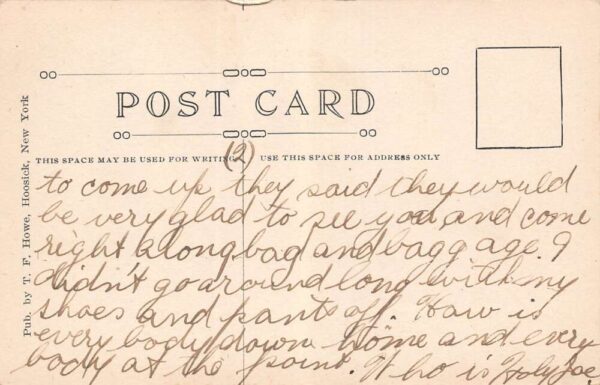 POST CARD
THIS SPACE MAY BE USED FOR WRITING
USE THIS SPACE FOR ADDRESS ONLY
Pub. by T. F. Howe, Hoosick, New York
(2)
to come up they said they would
be very glad to see you, and come
right along bag and baggage. I
didn't go around long with my
shoes and pants off. How is
every body down home and every
body at the point. Who is Holy Joe,